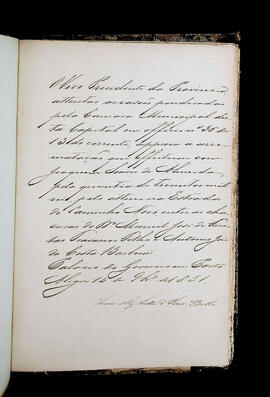 O Vice Presidente da Provincia
attentas as rasões ponderadas
pela Camara Municipal des
ta Capital em officio nº 35 de
13 do corrente, approva a arre
matação que effeituou com
Joaquim de Almeida,
pela quantia de
reis, pelo aterro na Estrada
do Caminho Novo entre as cha
caras de Dr. Manoel José de Frei
tas Travassos Filho e Antonio Jo
sé da Costa Barboza.
Palacio do Governo em Porto
Alegre 14 de 9bro de 1851.